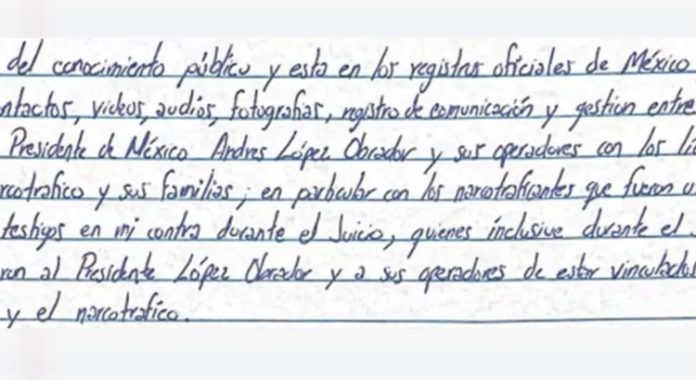 del conocimiento público y esta en los registros oficiales de México
ntactos, videos, audios, fotografias, registro de comunicación y gestion entre
Presidente de México Andres López Obrador y sus operadores con los lí
rcotrafico y sus familias; en particular con los narcotraficantes que fueron u
testigos en mi contra durante el Juicio, quienes inclusive durante el
ron al Presidente López Obrador y a sus operadores de estar vinculados
y el narcotrafico.